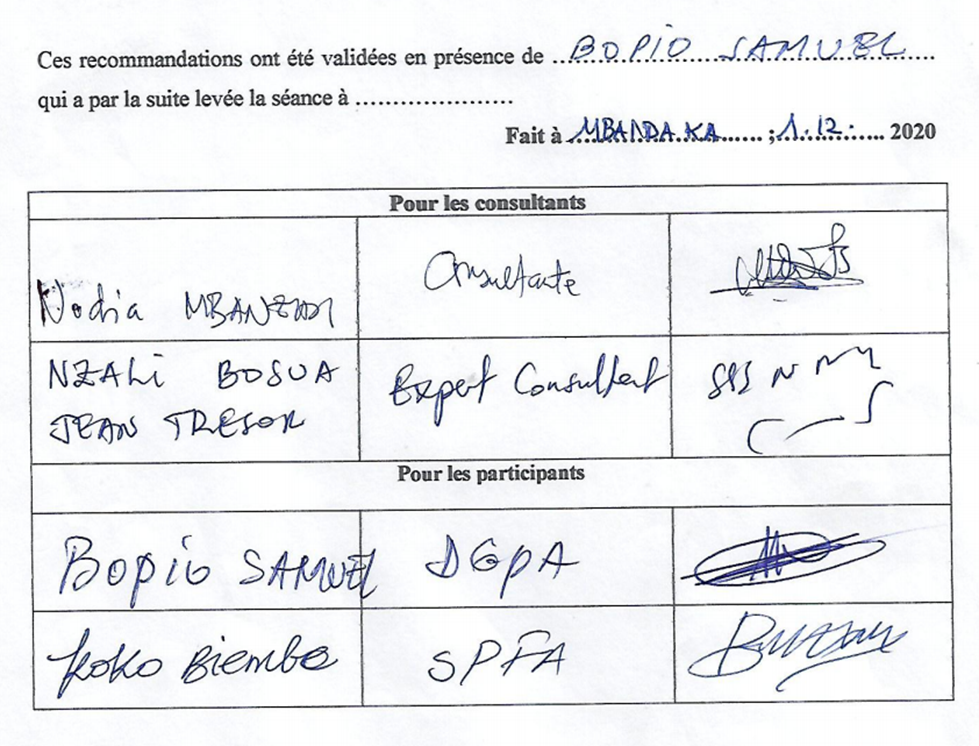 Ces recommandations ont été validées en présence de ..BOPIO SAMUEL....
qui a par la suite levée la séance à ......................
Fait à MBANDAKA....... ;.1.12..... 2020
Pour les consultants
Nadia MBANZIDI Consultante
NZALI BOSUA Expert Consultant
JEAN TRESOR
Pour les participants
Bopio SAMUEL DGPA
Koko Biembe SPFA